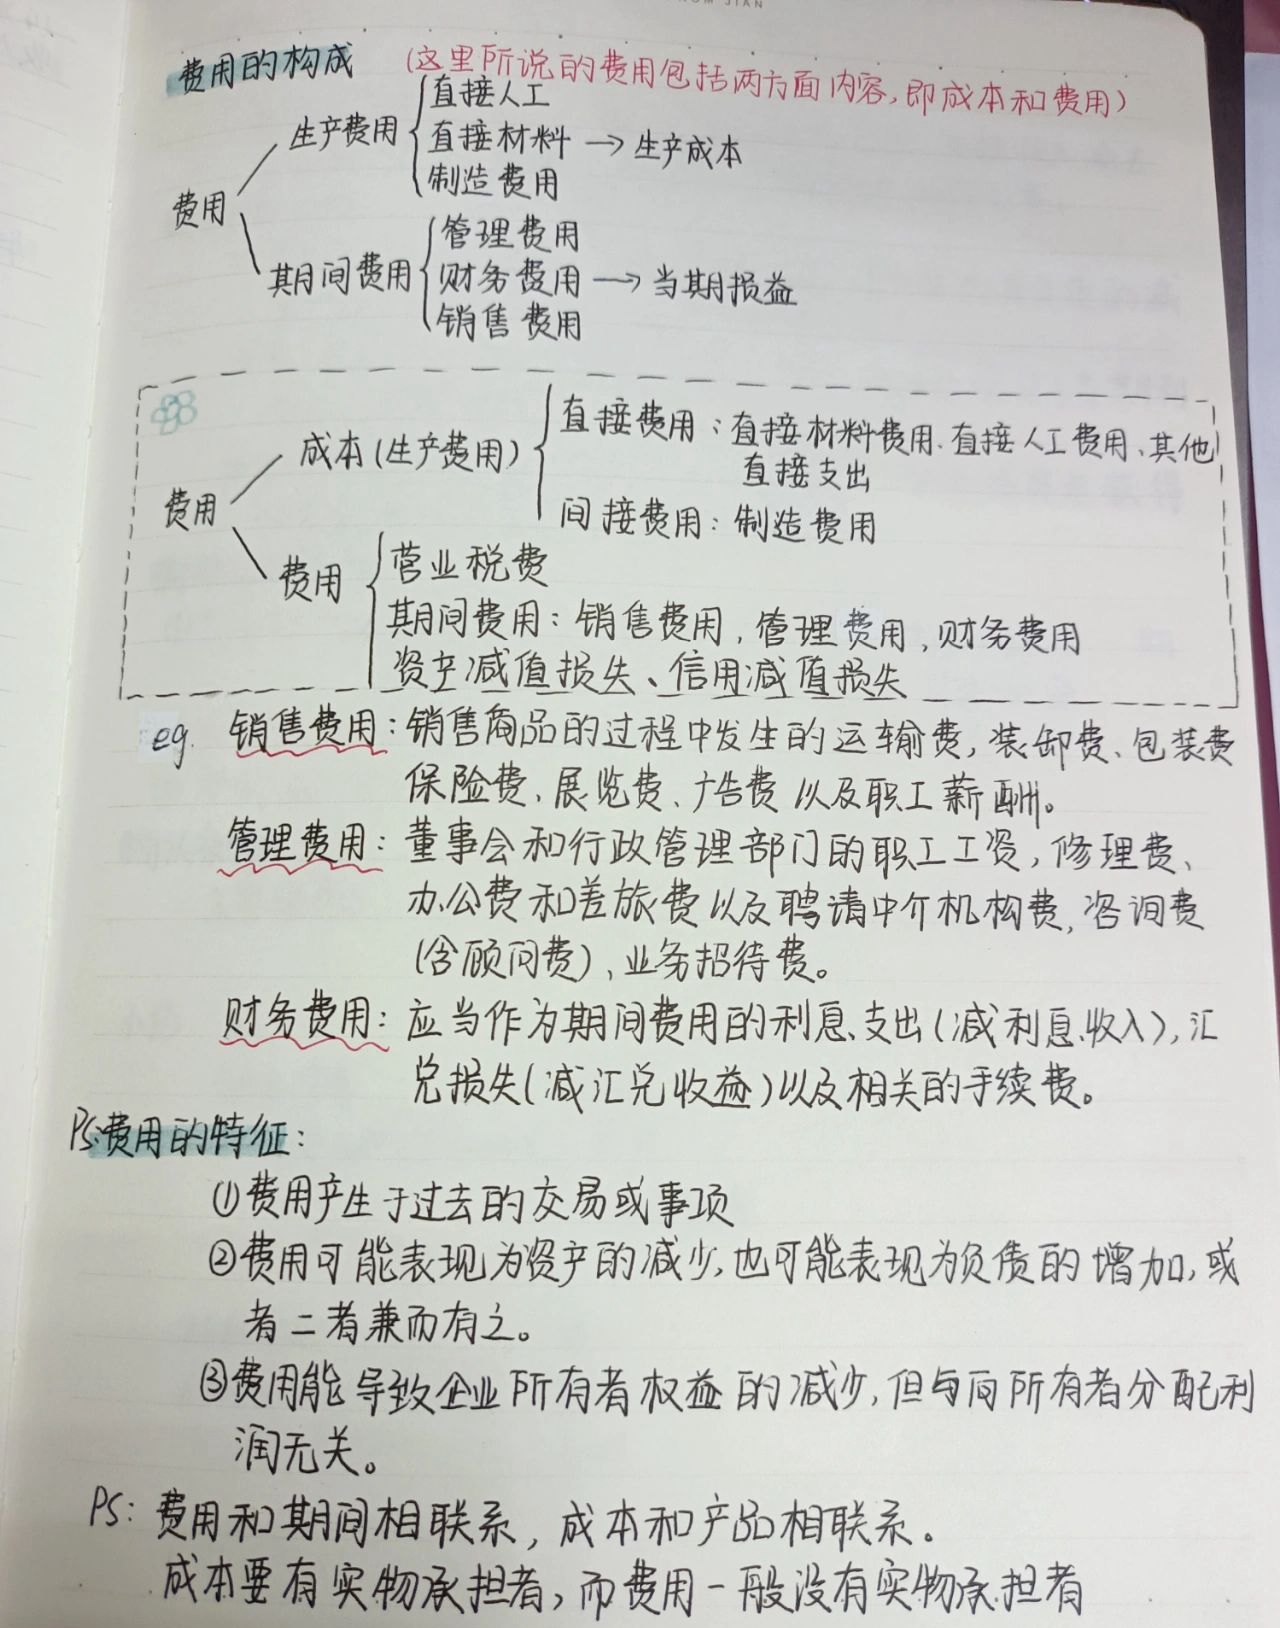 费用的构成 (这里所说的费用包括两方面内容,即成本和费用)
直接人工
生产费用 直接材料 → 生产成本
制造费用
费用
管理费用
期间费用 财务费用 → 当期损益
销售费用
直接费用:直接材料费用、直接人工费用、其他
成本(生产费用) 直接支出
费用 间接费用:制造费用
营业税费
费用 期间费用:销售费用,管理费用,财务费用
资产减值损失、信用减值损失
eg. 销售费用:销售商品的过程中发生的运输费,装卸费、包装费
保险费、展览费、广告费以及职工薪酬。
管理费用:董事会和行政管理部门的职工工资,修理费、
办公费和差旅费以及聘请中介机构费,咨询费
(含顾问费)、业务招待费。
财务费用:应当作为期间费用的利息支出(减利息收入),汇
兑损失(减汇兑收益)以及相关的手续费。
PS:费用的特征:
①费用产生于过去的交易或事项
②费用可能表现为资产的减少,也可能表现为负债的增加,或
者二者兼而有之。
③费用能导致企业所有者权益的减少,但与向所有者分配利
润无关。
PS:费用和期间相联系,成本和产品相联系。
成本要有实物承担者,而费用一般没有实物承担者